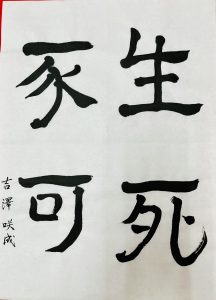 生死
豕可
吉澤咲成